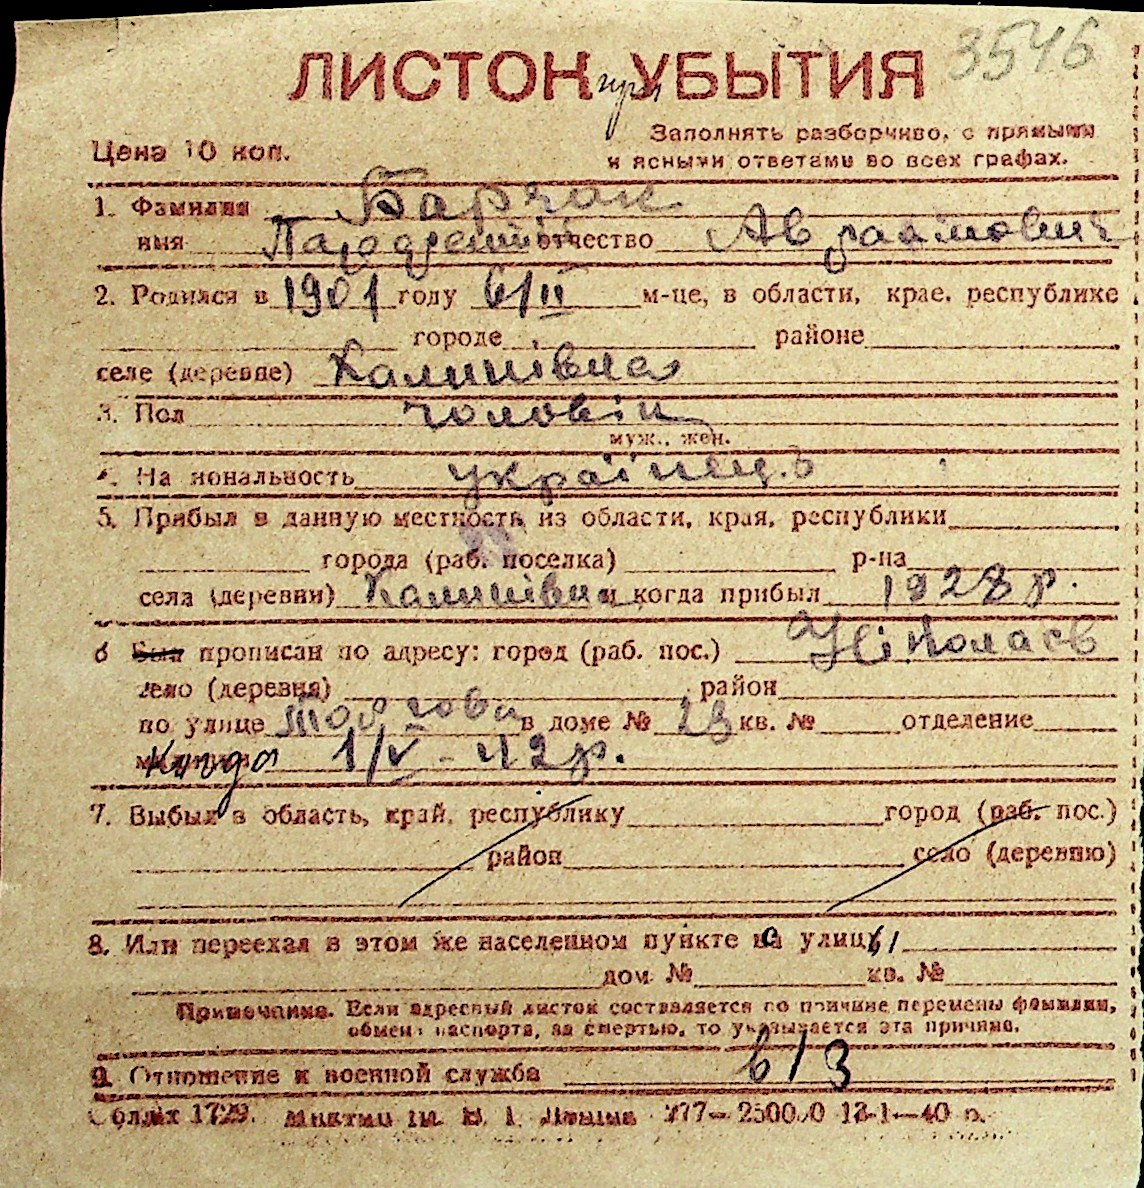 3546
ЛИСТОК УБЫТИЯ
Цена 10 коп.
Заполнять разборчиво, с прямыми
и ясными ответами во всех графах.
1. Фамилия Барчак
имя отчество Авраамович
2. Родился в 1901 году 6/II м-це, в области, крае, республике
городе районе
селе (деревне) Калинівка
3. Пол чоловік
муж., жен.
4. Национальность українець
5. Прибыл в данную местность из области, края, республики
города (раб. поселка) р-на
села (деревни) Калинівка и когда прибыл 1928 р.
6 Был прописан по адресу: город (раб. пос.) Ніколаєв
село (деревня) район
по улице в доме № 23 кв. № отделение
милиции Когда 1/V - 42 р.
7. Выбыл в область, край, республику город (раб. пос.)
район село (деревню)
8. Или переехал в этом же населенном пункте с улицы
дом № кв. №
Примечание. Если адресный листок составляется по причине перемены фамилии,
обмена паспорта, за смертью, то указывается эта причина.
9. Отношение к военной службе в/з
1729. 777— 13-1—40 р.